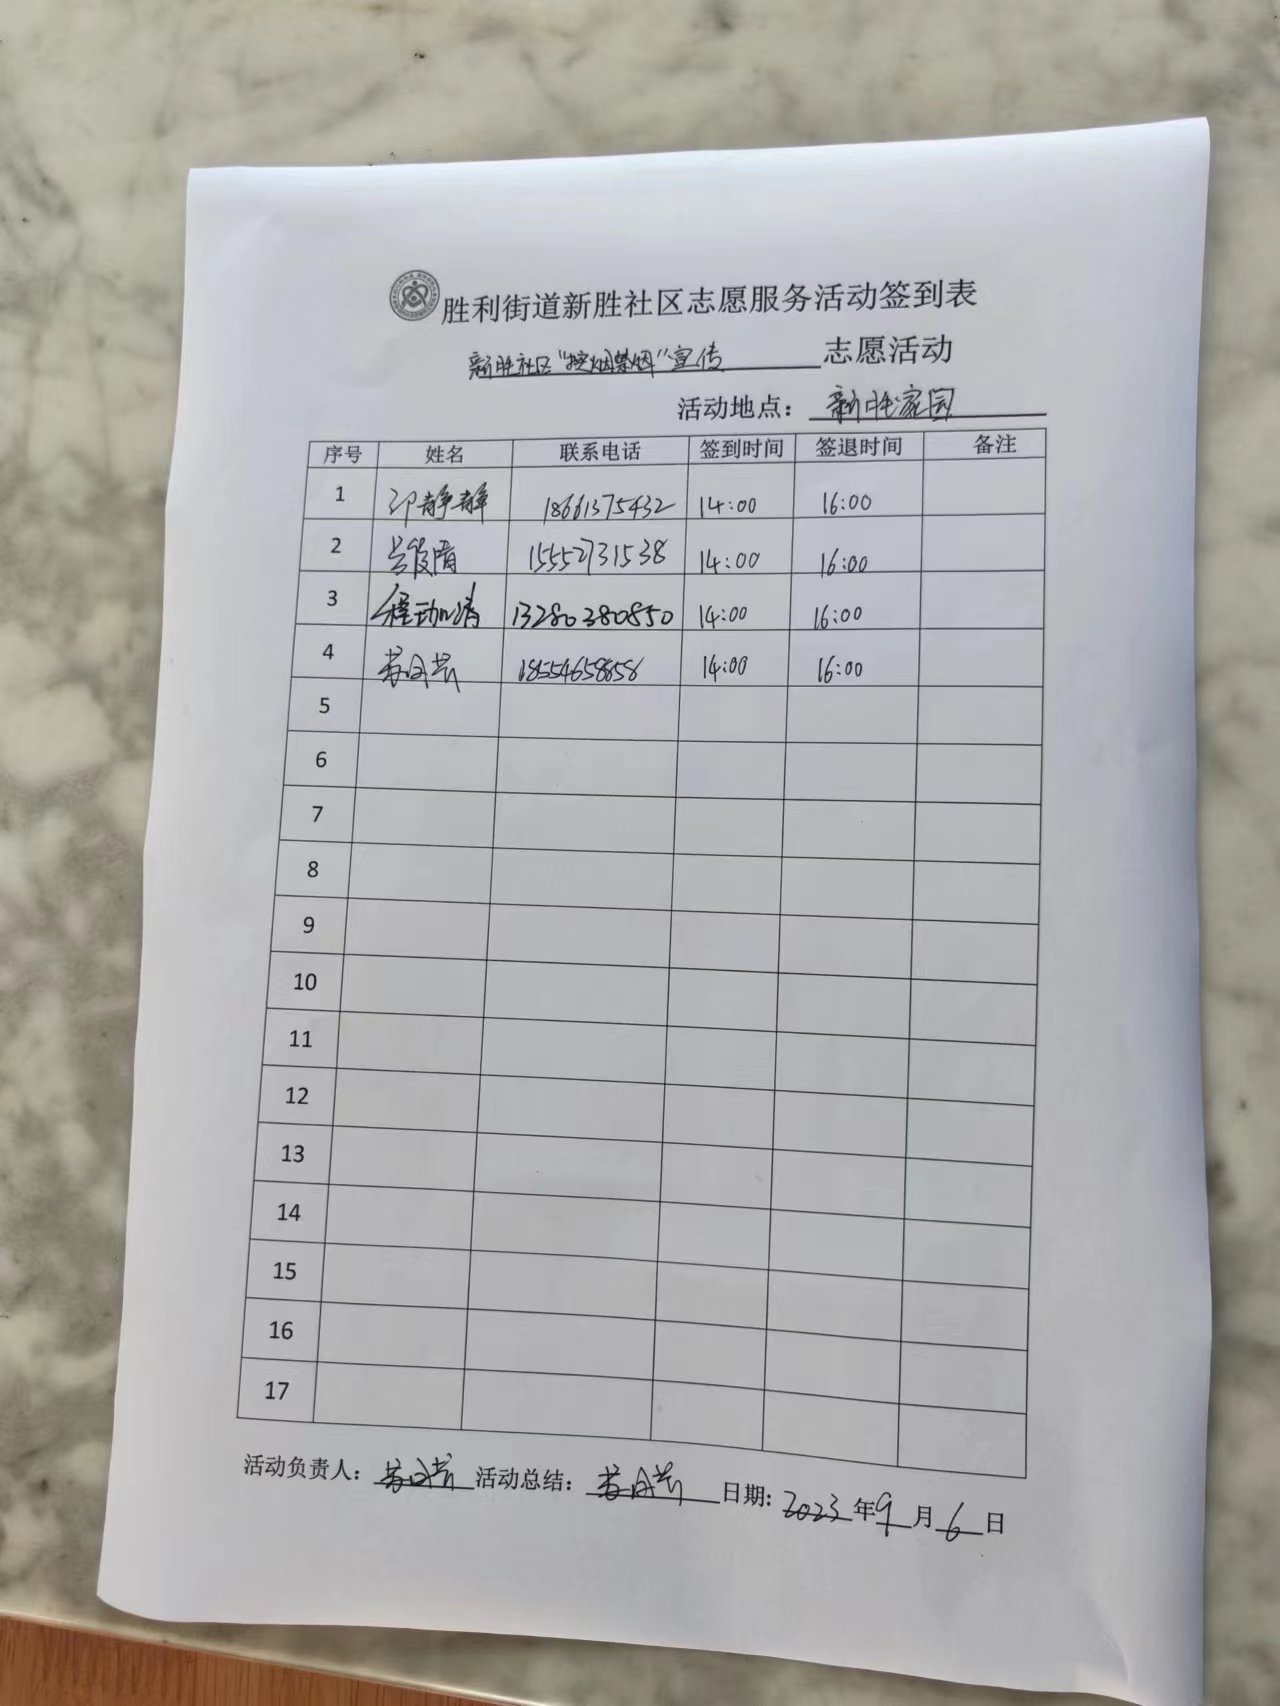 胜利街道新胜社区志愿服务活动签到表
新胜社区“控烟禁烟”宣传 志愿活动
活动地点： 新胜家园
序号 姓名 联系电话 签到时间 签退时间 备注
1 邱静静 18661375432 14:00 16:00
2 15552731538 14:00 16:00
3 13280380850 14:00 16:00
4 18554658658 14:00 16:00
5
6
7
8
9
10
11
12
13
14
15
16
17
活动负责人： 活动总结： 日期: 2023 年 9 月 6 日